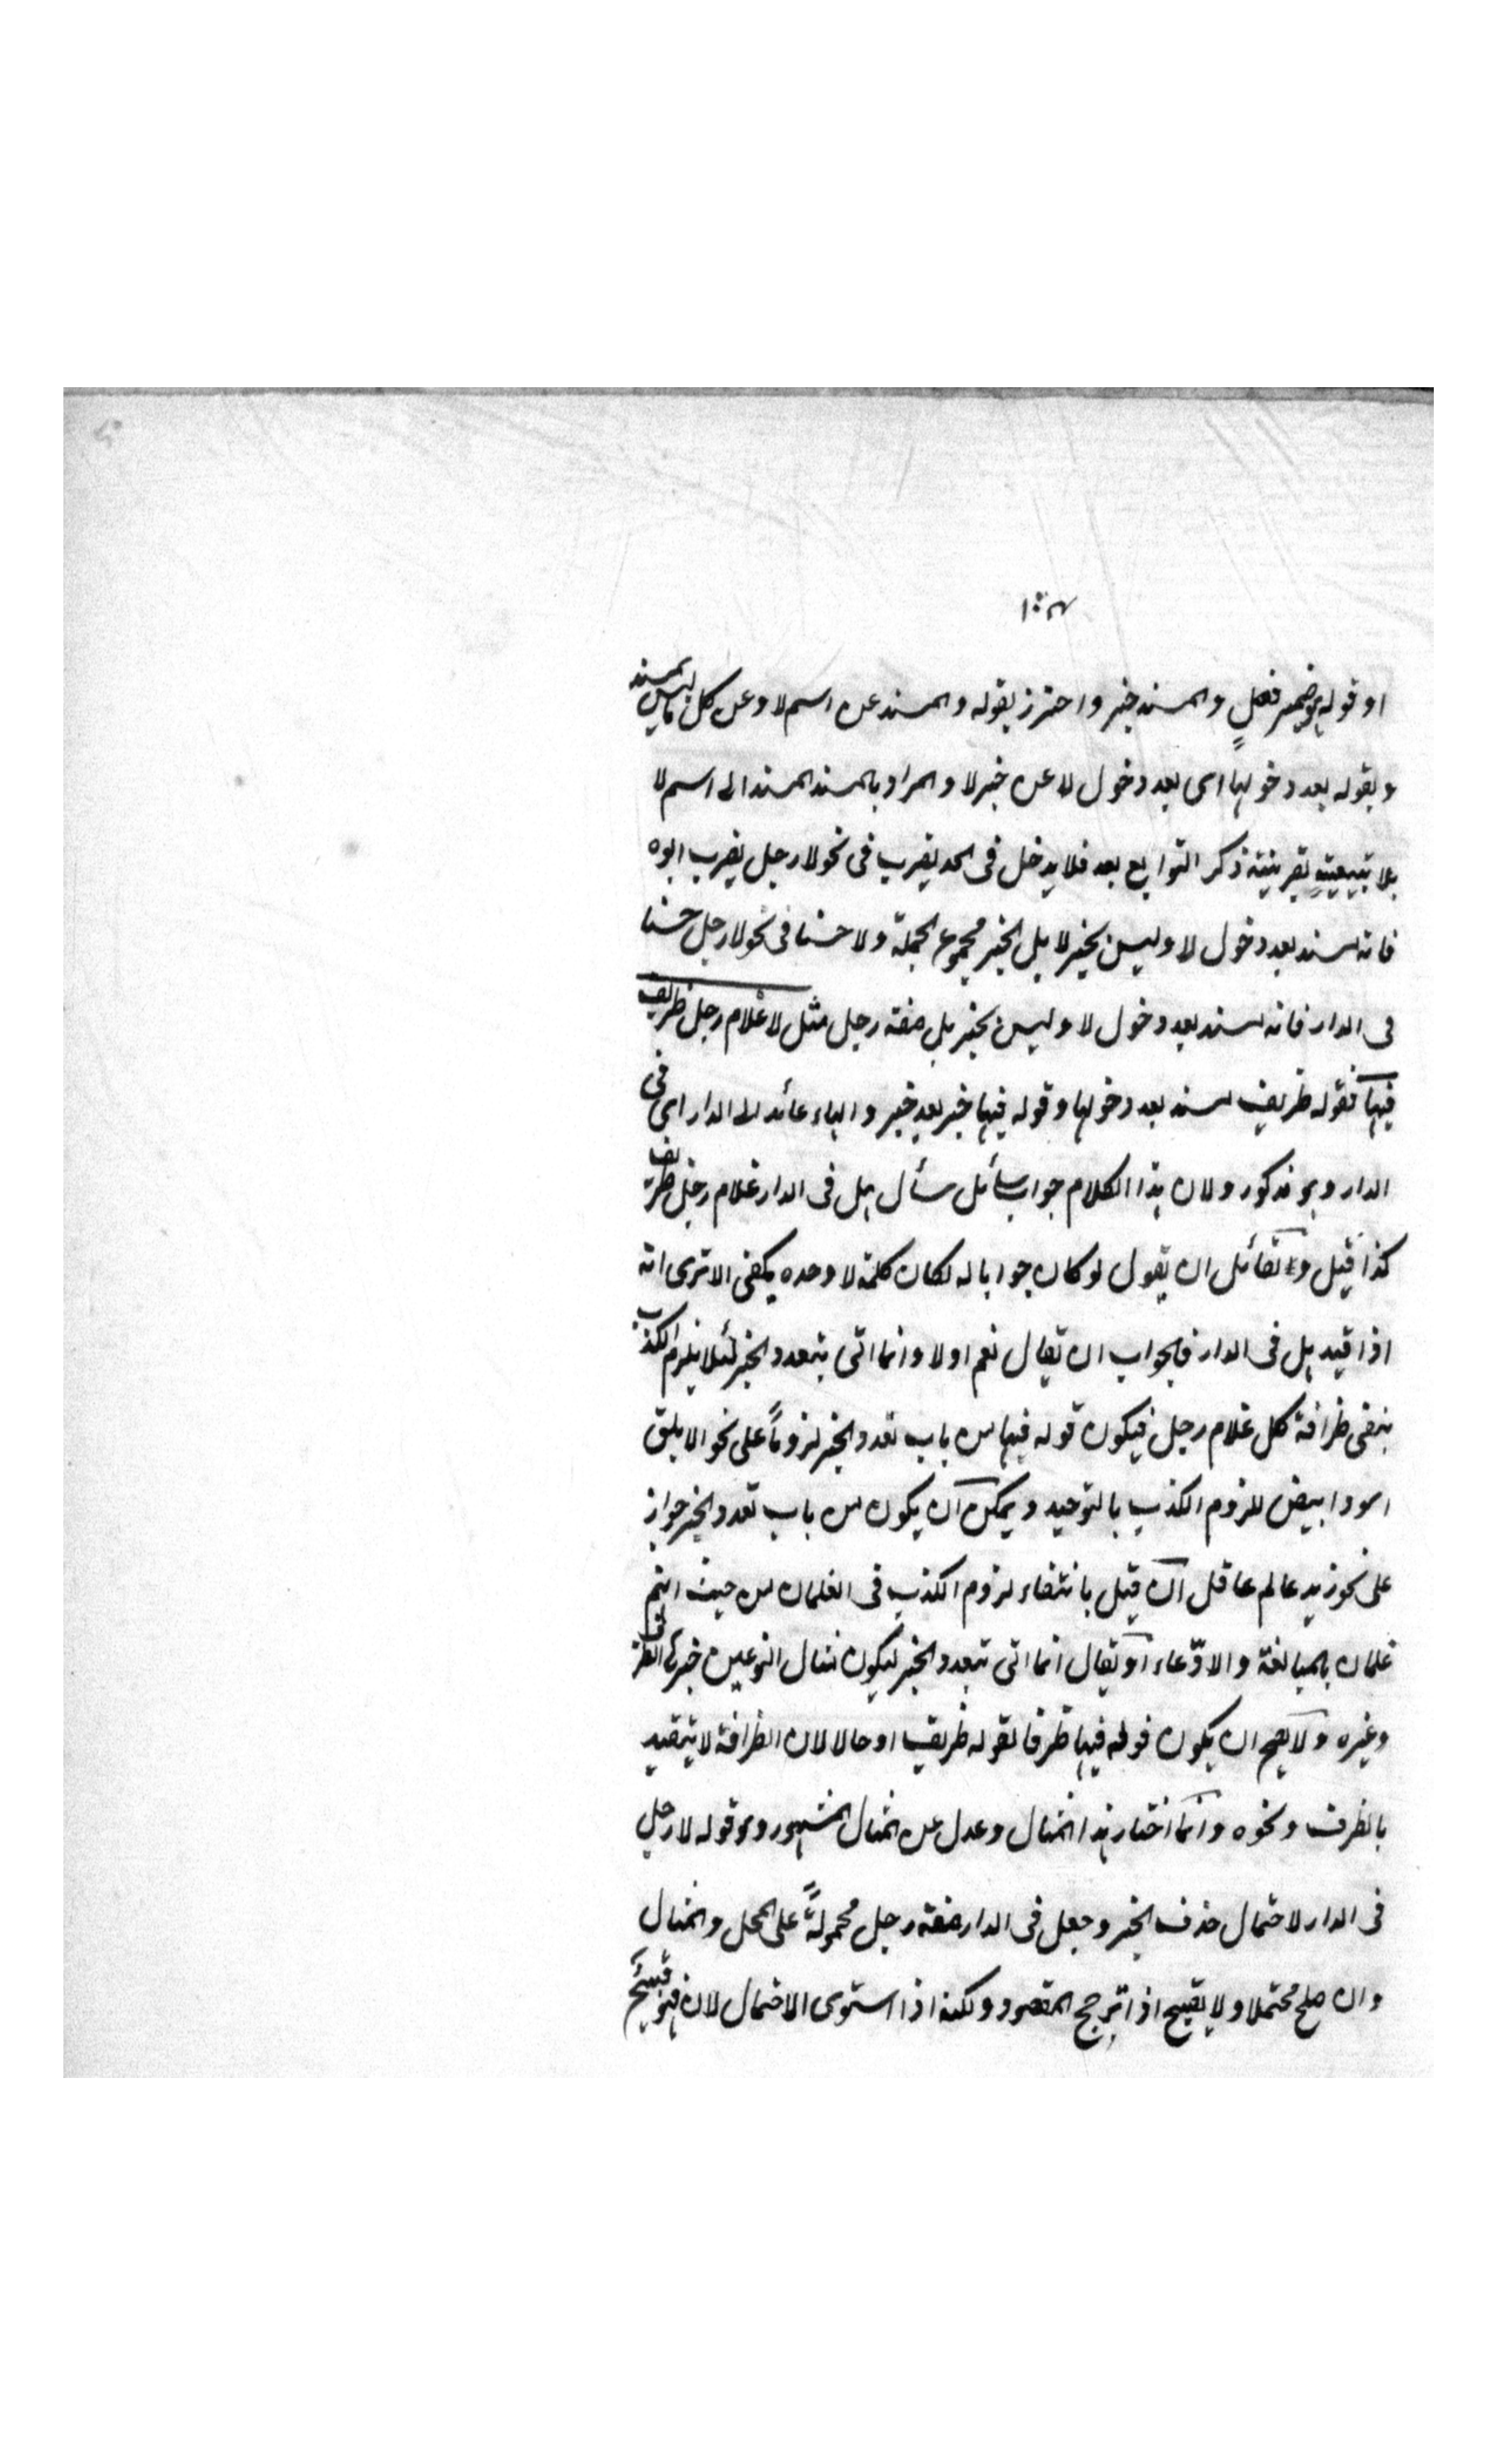 او قوله هو ضمير فصل والمسند خبر واحترز بقوله والمسند عن اسم لا وعن كل ما ليس بمسند
وبقوله بعد دخولها اى بعد دخول لا عن خبر لا والمراد بالمسند المسند الى اسم لا
بلا تبعيته بقرينة ذكر التوابع بعد فلا يدخل فى الحد يضرب فى نحو لا رجل يضرب ابوه
فانه مسند بعد دخول لا وليس بخبر لا بل الخبر مجموع الجملة ولا حسنا فى نحو لا رجل حسنا
فى الدار فانه مسند بعد دخول لا وليس بخبر بل صفة رجل مثل لا غلام رجل ظريف
فيها فقوله ظريف مسند بعد دخولها وقوله فيها خبر بعد خبر والهاء عائد الى الدار اى فى
الدار وهو مذكور ولان هذا الكلام جواب سائل سأل هل فى الدار غلام رجل ظريف
كذا قيل و لقائل ان يقول لو كان جوابا له لكان كلمة لا وحده يكفى الا ترى انه
اذا قيد هل فى الدار فالجواب ان يقال نعم او لا وانما اتى بتعدد الخبر لئلا يلزم الكذب
بنفى ظرافة كل غلام رجل فيكون قوله فيها من باب تعدد الخبر لزوماً على نحو الابلق
اسود ابيض للزوم الكذب بالتوحيد ويمكن ان يكون من باب تعدد الخبر جواز
على نحو زيد عالم عاقل ان قيل بانتفاء لزوم الكذب فى الغلمان من حيث انهم
غلمان بالمبالغة والادّعاء او يقال انما اتى بتعدد الخبر ليكون مثال النوعين خبرها الظرفى
وغيره ولا يصح ان يكون قوله فيها ظرفا لقوله ظريف او حالا لان الظرافة لا يتقيد
بالظرف ونحوه وانما اختار هذا المثال وعدل عن المثال المشهور وهو قوله لا رجل
فى الدار لاحتمال حذف الخبر وجعل فى الدار صفة رجل محمولةً على المحل والمثال
وان صلح محتملا ولا يقبح اذا ترجح المقصود ولكنه اذا استوى الاحتمال لان فهو قبيح